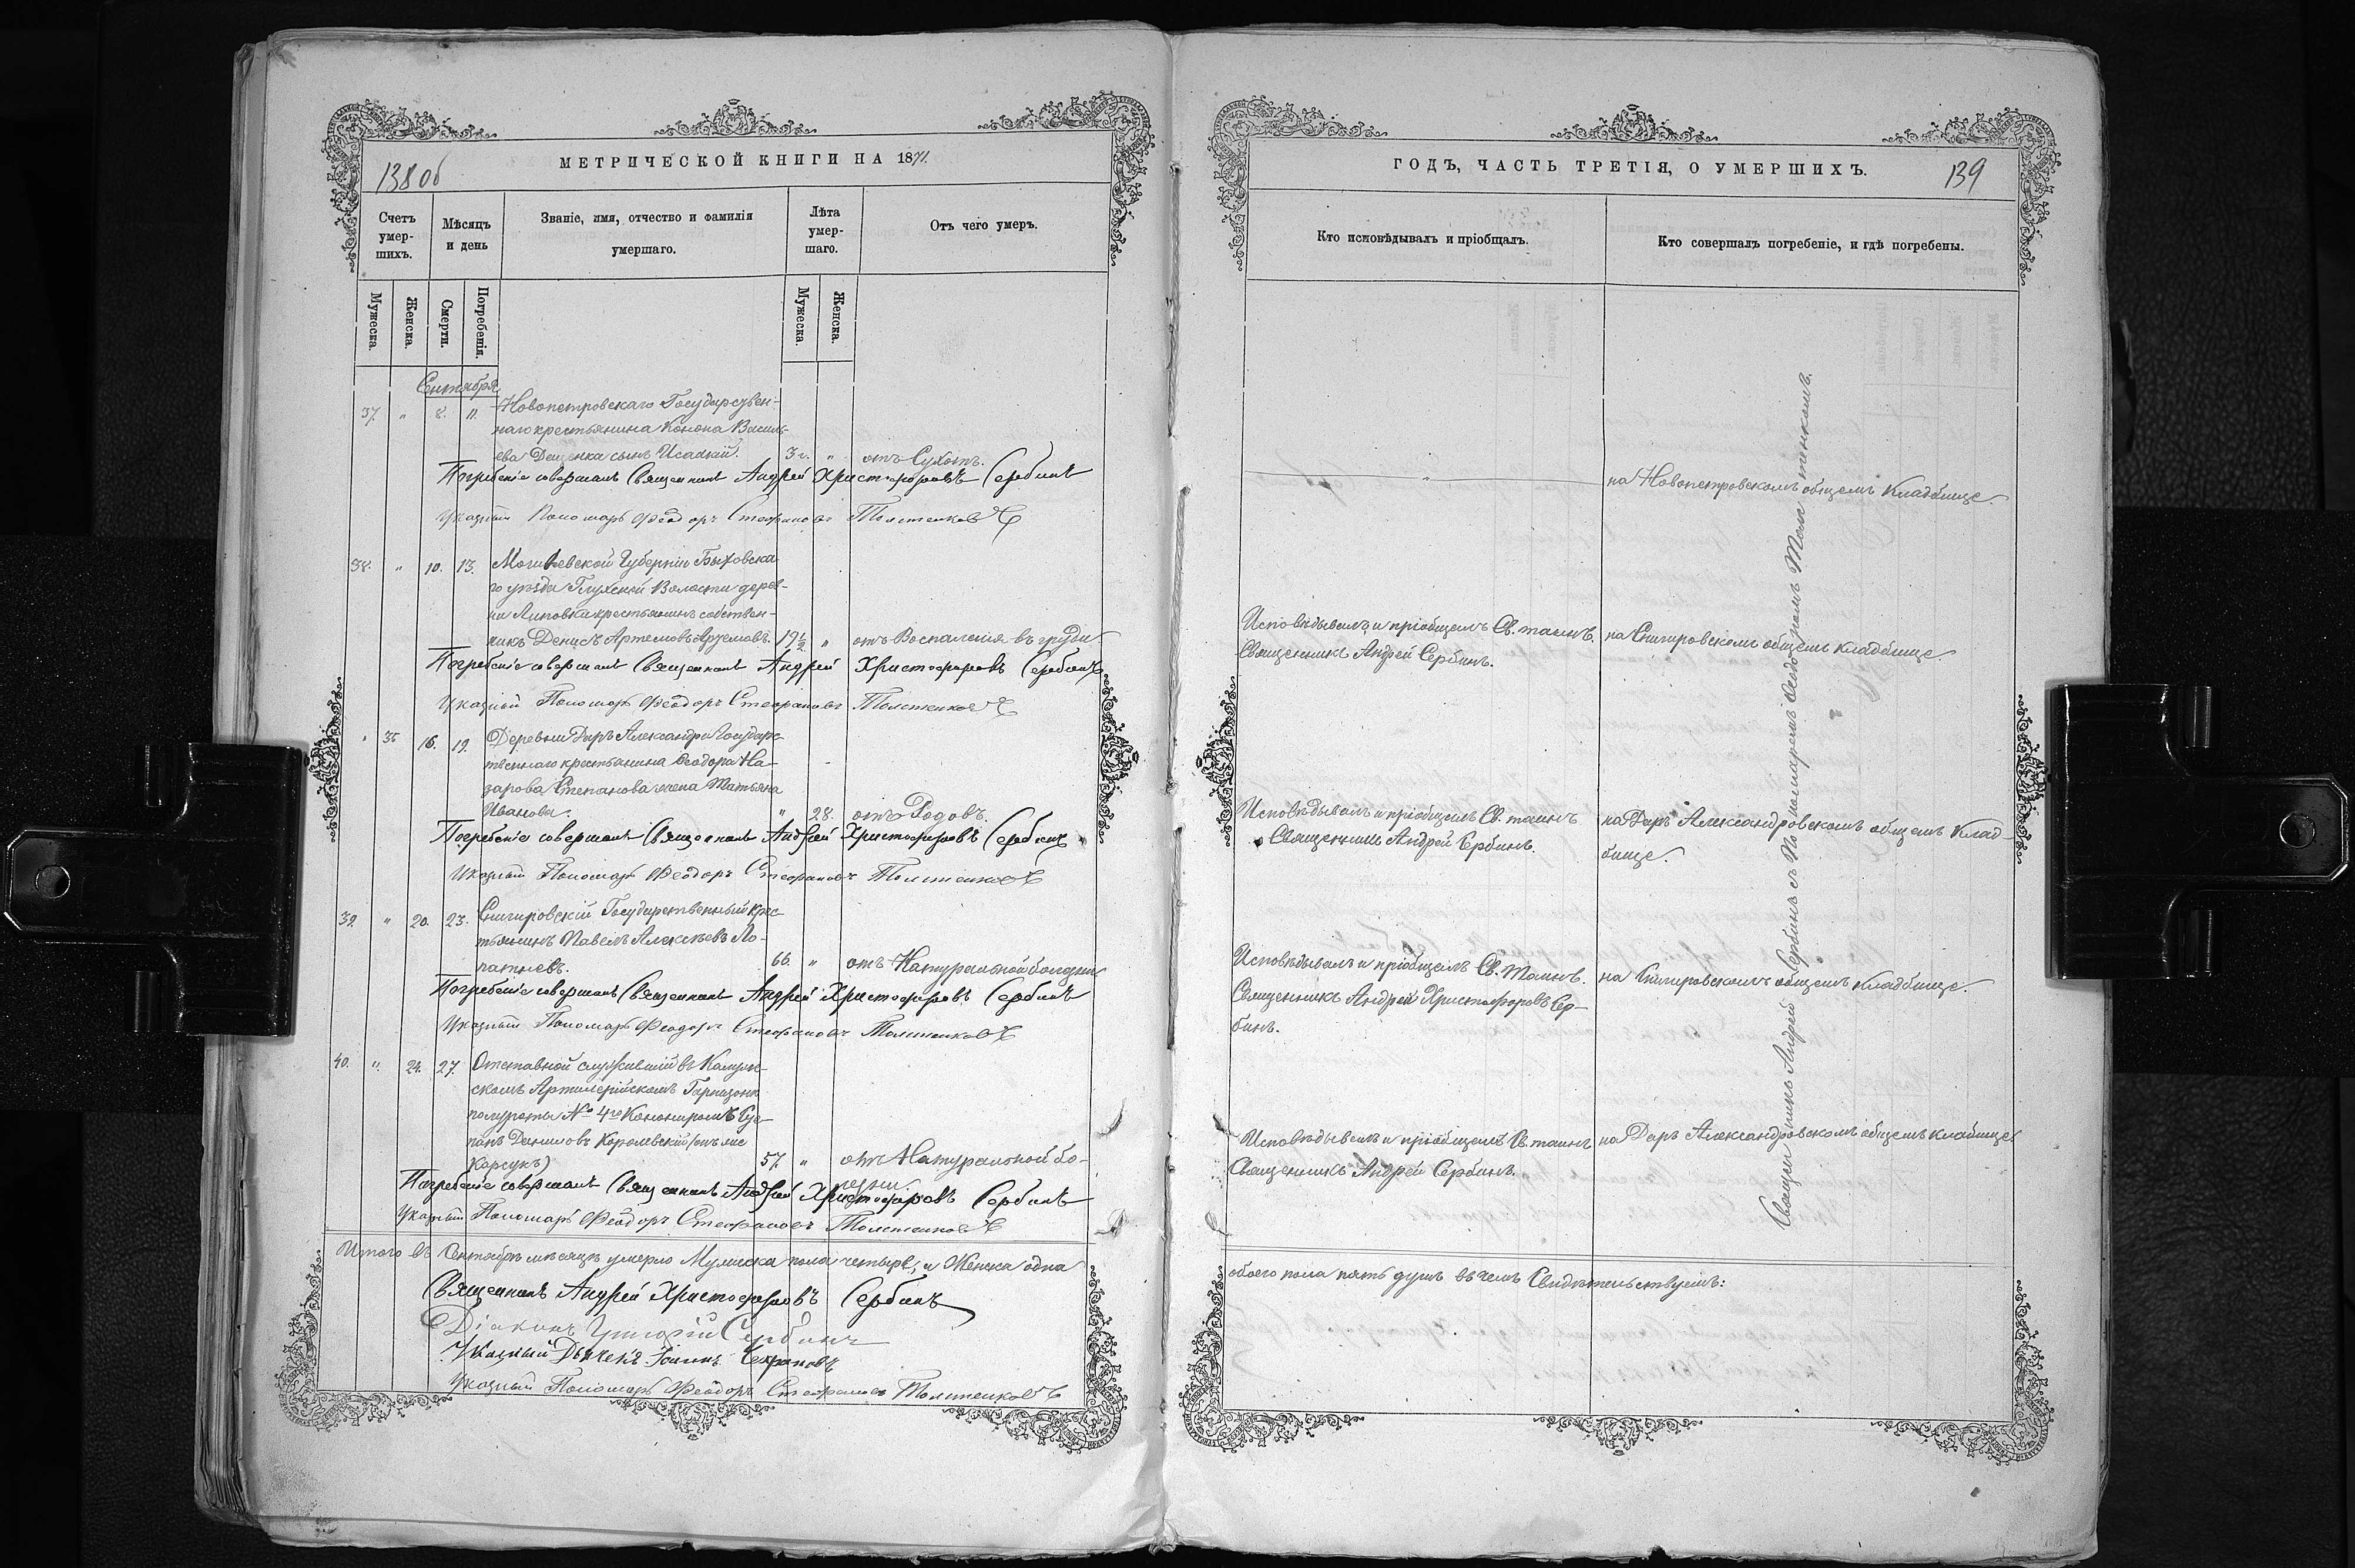 138 об
МЕТРИЧЕСКОЙ КНИГИ НА 1871.
Счетъ умер-шихъ.
Мѣсяцъ и день
Званіе, имя, отчество и фамилія умершаго.
Лѣта умер-шаго.
Отъ чего умеръ.
Мужеска.
Женска.
Смерти.
Погребенія.
Мужеска.
Женска.
Сентября
37. " 8. 11. Новопетровскаго Государствен-
наго крестьянина Конона Василь-
ева Дещенка сынъ Исаакій. 3 г. " отъ Сухотъ.
Погребеніе совершалъ Священникъ Андрей Христофоровъ Сербинъ
Указный Пономарь Феодоръ Стефановъ Толстенковъ
38. " 10. 13. Могилевской Губерніи Быховска-
го уѣзда Глухской Волости дерев-
ни Липовка крестьянинъ собствен-
никъ Денисъ Артемовъ 19½ " отъ Воспаленія въ груди
Погребеніе совершалъ Священникъ Андрей Христофоровъ Сербинъ
Указный Пономарь Феодоръ Стефановъ Толстенковъ
" 35 16. 19. Деревни Даръ Александра Государс-
твеннаго крестьянина Феодора На-
зарова Степанова жена Татьяна
Иванова. " 28. отъ Родовъ.
Погребеніе совершалъ Священникъ Андрей Христофоровъ Сербинъ
Указный Пономарь Феодоръ Стефановъ Толстенковъ
39. " 20. 23. Снигировскій Государственный крес-
тьянинъ Павелъ Алексѣевъ Ло-
патневъ. 66. " отъ Натуральной болѣзни
Погребеніе совершалъ Священникъ Андрей Христофоровъ Сербинъ
Указный Пономарь Феодоръ Стефановъ Толстенковъ
40. " 24. 27. Отставной служившій въ
скомъ Артилерійскомъ Гарнизонѣ
полуроты № 4го
Даниловъ Королевскій (онъ же
Корсунъ) 57. " отъ Натуральной бо-
лѣзни.
Погребеніе совершалъ Священникъ Андрей Христофоровъ Сербинъ
Указный Пономарь Феодоръ Стефановъ Толстенковъ
Итого въ Сентябрѣ мѣсяцѣ умерло Мужеска пола четыре, и Женска одна
Священникъ Андрей Христофоровъ Сербинъ
Діаконъ Григорій Сербинъ
Указный Дьячекъ Іоаннъ
Указный Пономарь Феодоръ Стефановъ Толстенковъ
ГОДЪ, ЧАСТЬ ТРЕТІЯ, О УМЕРШИХЪ.
139
Кто исповѣдывалъ и пріобщалъ.
Кто совершалъ погребеніе, и гдѣ погребены.
" на Новопетровскомъ общемъ Кладбище.
Исповѣдывалъ и пріобщалъ Св. таинъ. на Снигировскомъ общемъ кладбище.
Священникъ Андрей Сербинъ.
Исповѣдывалъ и пріобщалъ Св. таинъ на Даръ Александровскомъ общемъ Клад-
Священникъ Андрей Сербинъ. бище.
Исповѣдывалъ и пріобщалъ Св. Таинъ. на Снигировскомъ общемъ Кладбище.
Священникъ Андрей Христофоровъ Сер-
бинъ.
Исповѣдывалъ и пріобщалъ Св. таинъ на Даръ Александровскомъ общемъ кладбище
Священникъ Андрей Сербинъ.
Священникъ Андрей Сербинъ съ Пономаремъ Феодоромъ Толстенкомъ.
обоего пола пять душъ въ чемъ Свидѣтельствуемъ: